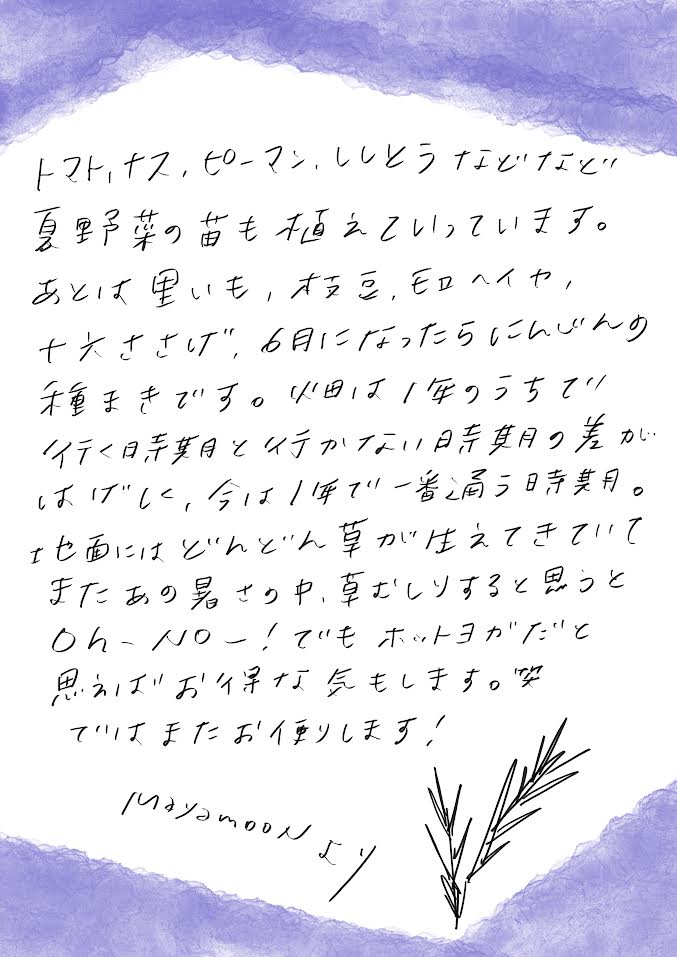 トマト,ナス,ピーマン,ししとうなどなど
夏野菜の苗も植えていっています。
あとは里いも,枝豆,モロヘイヤ,
十六ささげ,6月になったらにんじんの
種まきです。畑は1年のうちで
行く時期と行かない時期の差が
はげしく,今は1年で一番通う時期。
地面にはどんどん草が生えてきていて
またあの暑さの中,草むしりすると思うと
Oh-NOー!でもホットヨガだと
思えばお得な気もします。笑
ではまたお便りします!
Mayamoonより